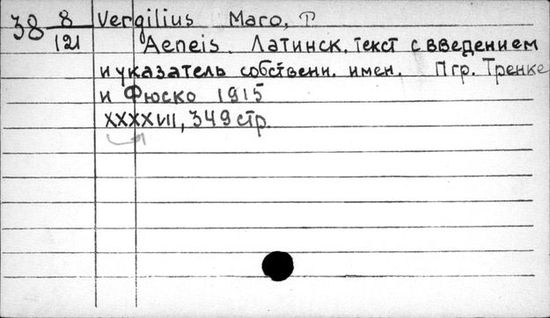 38 8/121 Vergilius Maro, P
Aeneis. Латинск. текст с введением
и указатель собственн. имен. Пгр. Тренке
и Фюско 1915
XXXXVII, 349 стр.